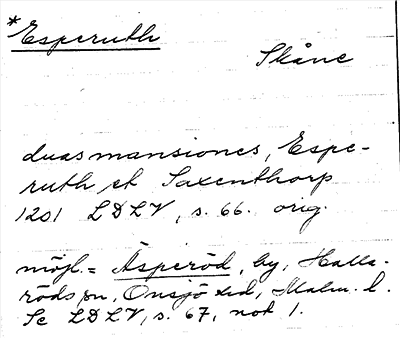 *Esperuth
Skåne
duas mansiones, Espe-
ruth et Saxenthorp
1201 LDLV, s. 66. orig.
möjl. = Äsperöd, by, Halla-
röds sn, Onsjö hd, Malm. l.
Se LDLV, s. 67, not 1.